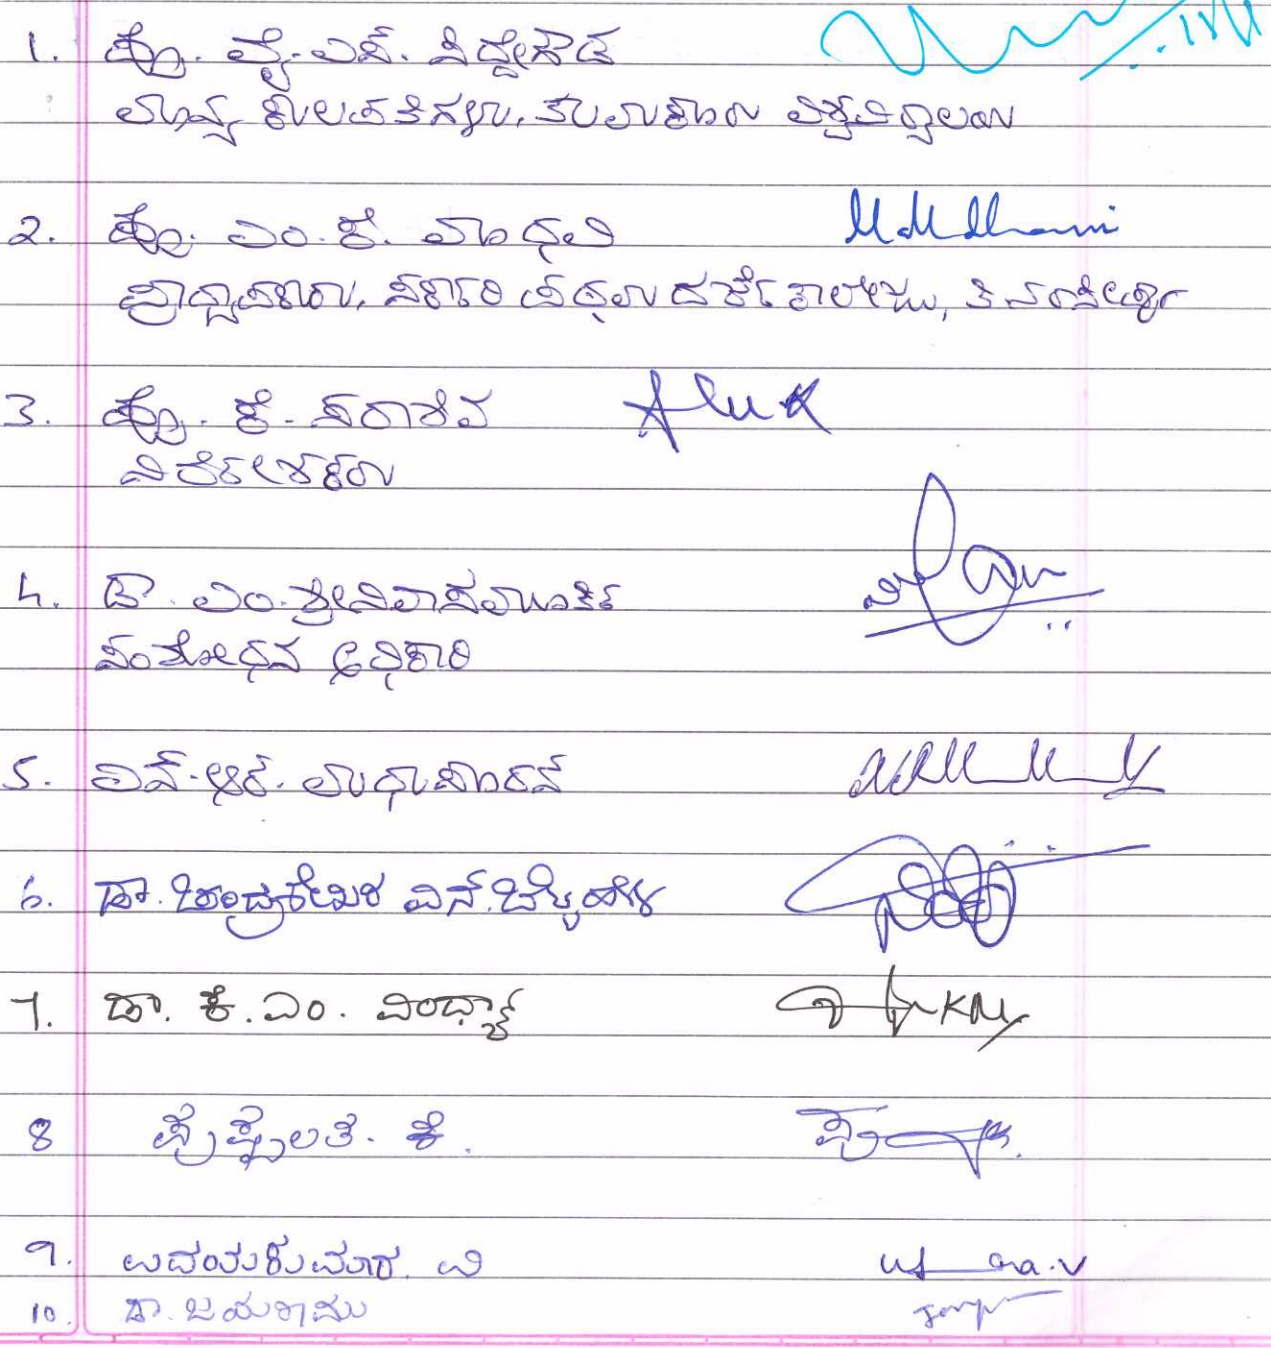 1. ಪ್ರೊ. ವೈ.ಎಸ್. ಸಿದ್ದೇಗೌಡ
ಮಾನ್ಯ ಕುಲಪತಿಗಳು, ತುಮಕೂರು ವಿಶ್ವವಿದ್ಯಾಲಯ
2. ಪ್ರೊ. ಎಂ.ಕೆ. ಮಾಧವಿ
ಪ್ರಾಧ್ಯಾಪಕರು, ಸರ್ಕಾರಿ ಪ್ರಥಮ ದರ್ಜೆ ಕಾಲೇಜು,
3. ಪ್ರೊ. ಕೆ. ಸದಾಶಿವ
ನಿರ್ದೇಶಕರು
4. ಡಾ. ಎಂ. ಶ್ರೀನಿವಾಸಮೂರ್ತಿ
ಸಂಶೋಧನ ಅಧಿಕಾರಿ
5. ಎನ್.ಆರ್.
6. ಡಾ. ಚಂದ್ರಶೇಖರ ಎನ್.
7. ಡಾ. ಕೆ.ಎಂ. ವಿಂಧ್ಯಾ
8 ಪುಷ್ಪಲತ. ಕೆ.
9. ಉದಯಕುಮಾರ. ವಿ
10. ಡಾ. ಜಯರಾಮು